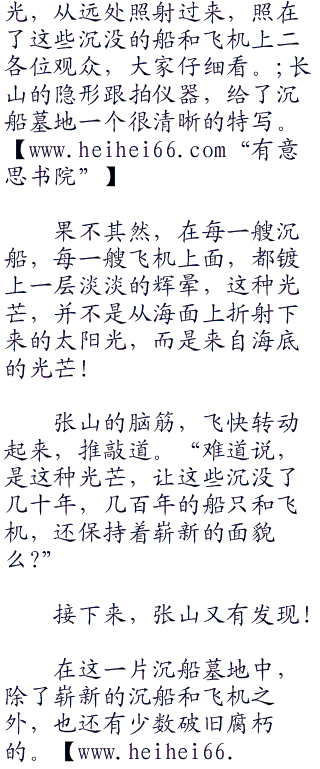 光，从远处照射过来，照在
了这些沉没的船和飞机上二
各位观众，大家仔细看。；长
山的隐形跟拍仪器，给了沉
船墓地一个很清晰的特写。
【www.heihei66.com“有意
思书院”】
果不其然，在每一艘沉
船，每一艘飞机上面，都镀
上一层淡淡的辉晕，这种光
芒，并不是从海面上折射下
来的太阳光，而是来自海底
的光芒！
张山的脑筋，飞快转动
起来，推敲道。“难道说，
是这种光芒，让这些沉没了
几十年，几百年的船只和飞
机，还保持着崭新的面貌
么？”
接下来，张山又有发现！
在这一片沉船墓地中，
除了崭新的沉船和飞机之
外，也还有少数破旧腐朽
的。【www.heihei66.